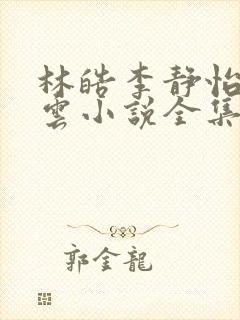 林皓李靜怡
雲小說全集
郭金龍